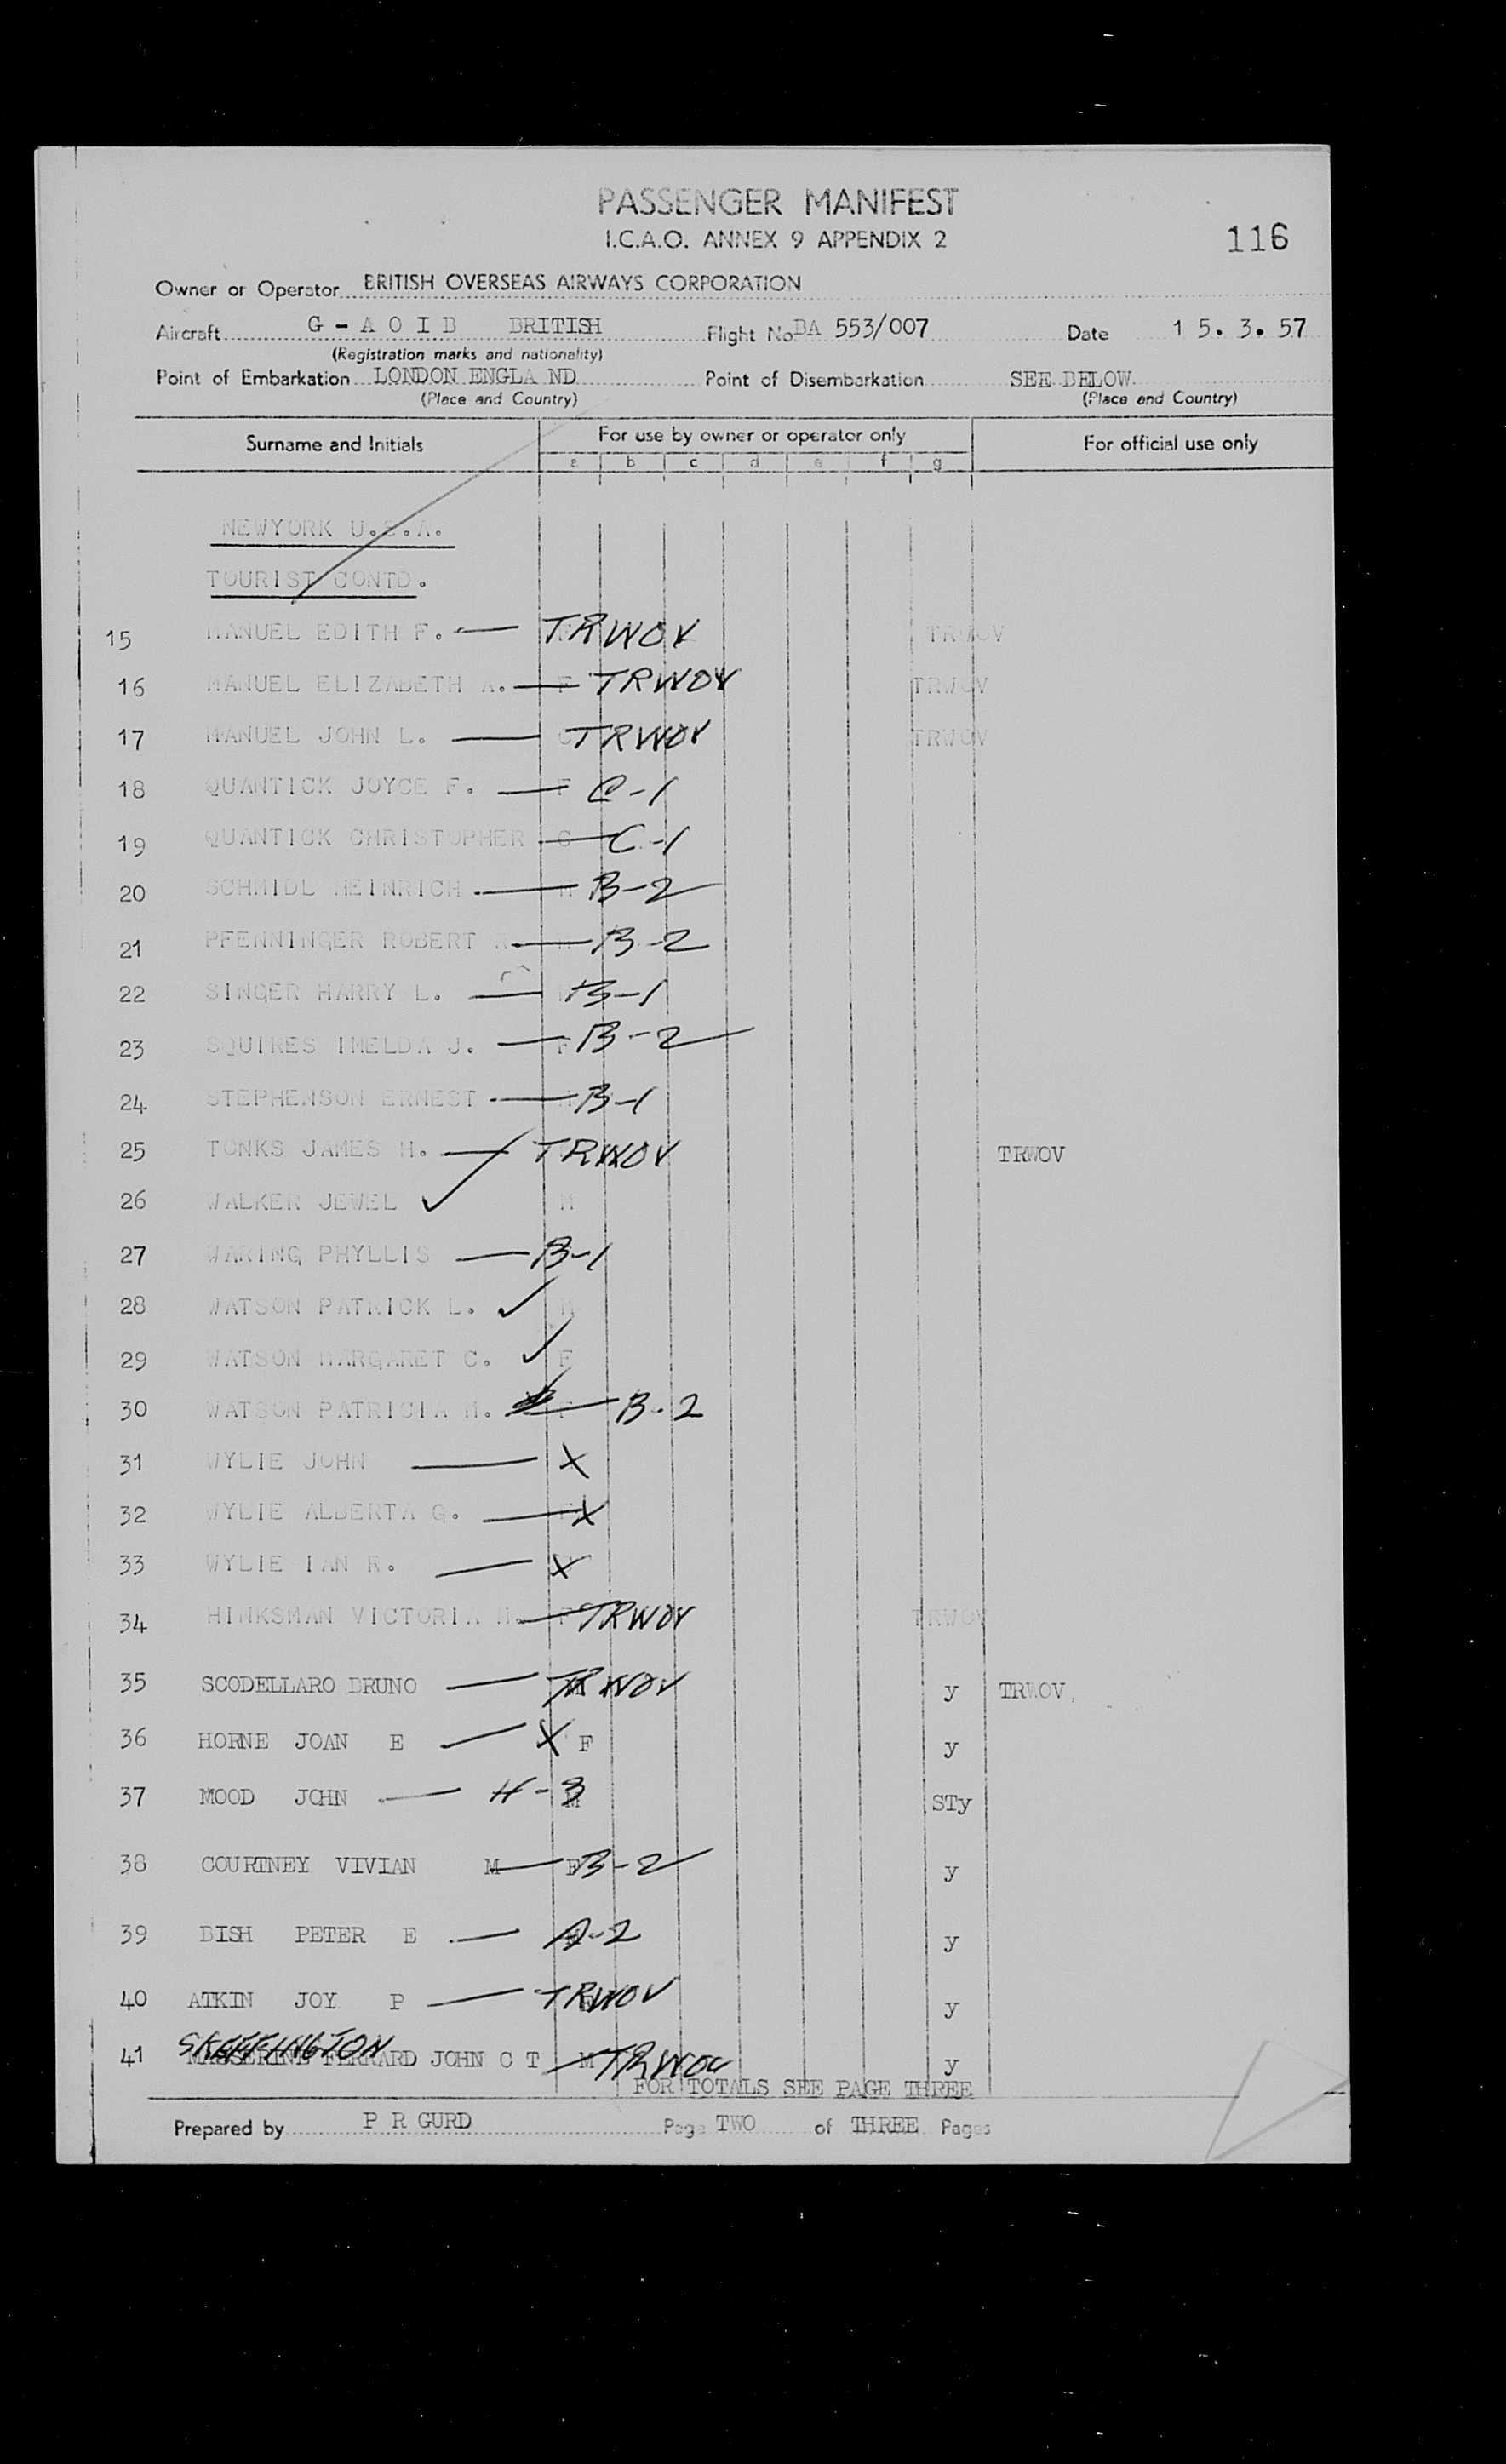 PASSENGER MANIFEST
I.C.A.O. ANNEX 9 APPENDIX 2
116
Owner or Operator BRITISH OVERSEAS AIRWAYS CORPORATION
Aircraft G - A O I B BRITISH Flight No BA 553/007 Date 1 5. 3. 57
(Registration marks and nationality)
Point of Embarkation LONDON ENGLA ND Point of Disembarkation SEE BELOW
(Place and Country) (Place and Country)
Surname and Initials For use by owner or operator only For official use only
a b c d e f g
NEWYORK U.S.A.
TOURIST CONTD.
15 MANUEL EDITH F. — TRWOV TRWOV
16 MANUEL ELIZABETH A. — F TRWOV TRWOV
17 MANUEL JOHN L. — C TRWOV TRWOV
18 QUANTICK JOYCE F. — F C-1
19 QUANTICK CHRISTOPHER — C C-1
20 SCHMIDL HEINRICH — M B-2
21 PFENNINGER ROBERT — M B-2
22 SINGER HARRY L. — B-1
23 SQUIRES IMELDA J. — F B-2
24 STEPHENSON ERNEST — M B-1
25 TONKS JAMES H. — TRWOV TRWOV
26 WALKER JEWEL ✓ M
27 WARING PHYLLIS — B-1
28 WATSON PATRICK L. ✓ M
29 WATSON MARGARET C. ✓ F
30 WATSON PATRICIA M. — F B-2
31 WYLIE JOHN — X
32 WYLIE ALBERTA G. — X
33 WYLIE IAN R. — X
34 HINKSMAN VICTORIA M. — F TRWOV TRWOV
35 SCODELLARO BRUNO — TRWOV y TRWOV
36 HORNE JOAN E — X F y
37 MOOD JOHN — H-3 M STy
38 COURTNEY VIVIAN M — F B-2 y
39 BISH PETER E — A-2 y
40 ATKIN JOY P — TRWOV y
SKEFFINGTON
41 MASSEREENE FERRARD JOHN C T — M TRWOV y
FOR TOTALS SEE PAGE THREE
Prepared by P R GURD Page TWO of THREE Pages